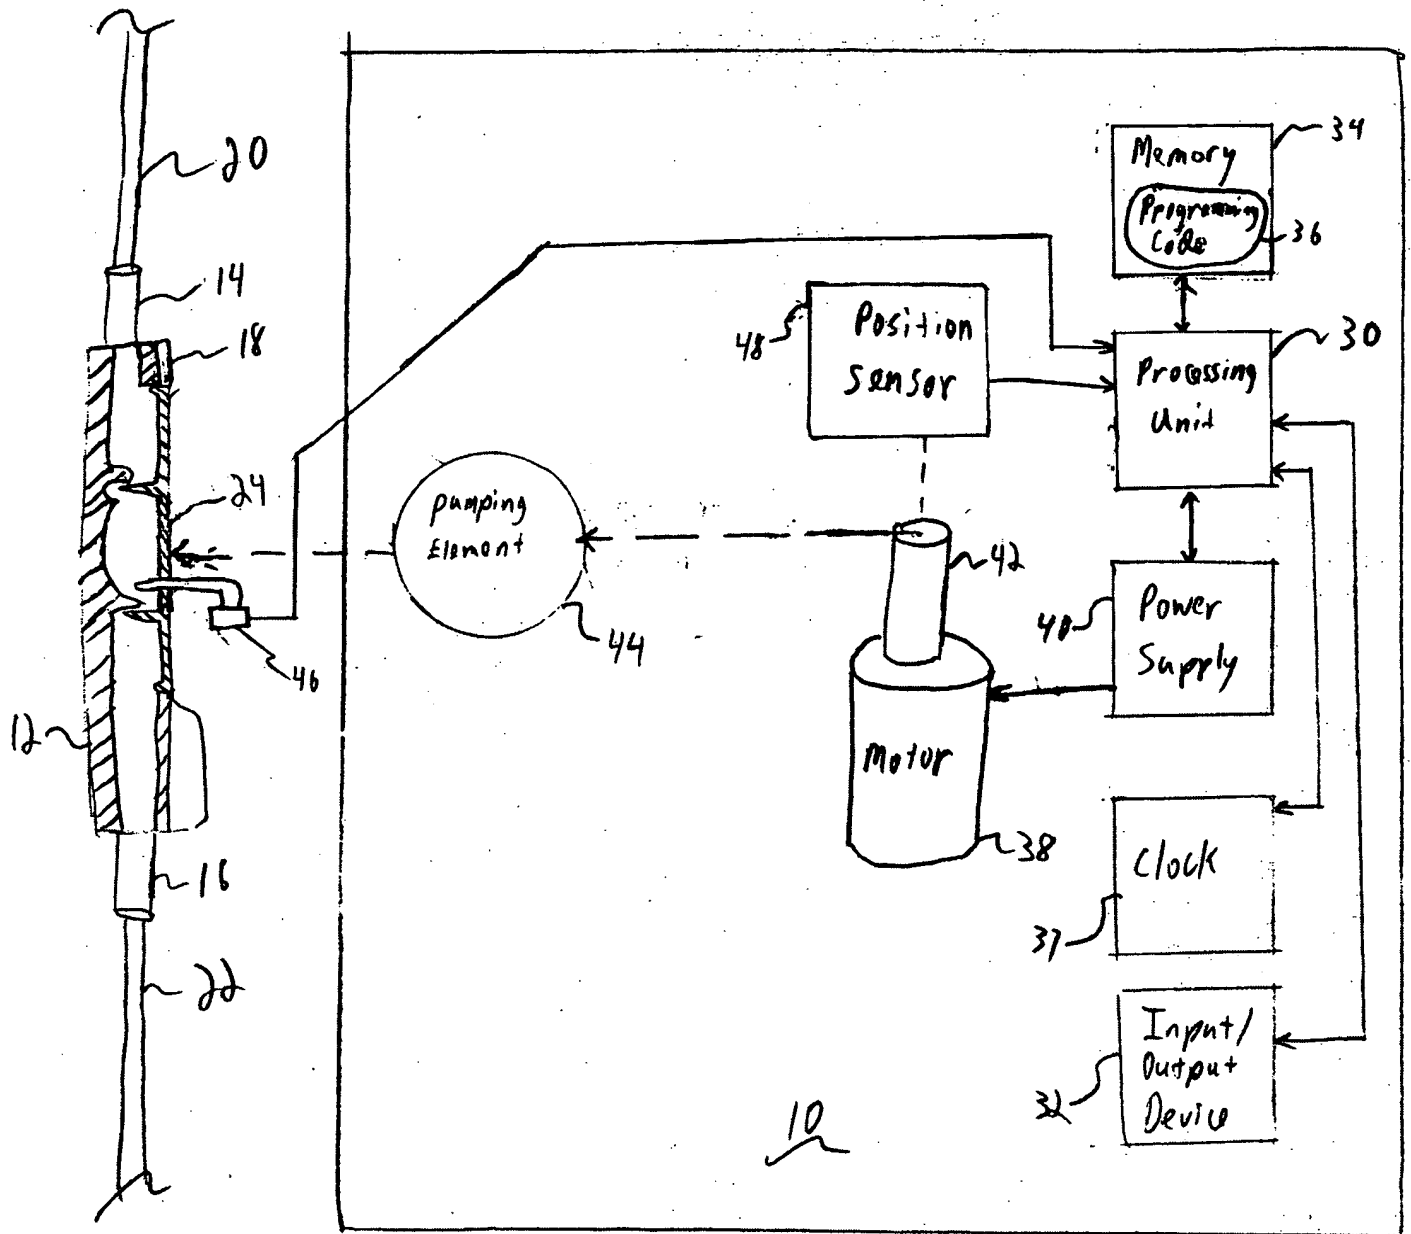 20
14
18
24
46
12
16
22
Memory
Programming
Code
34
36
48
Position
Sensor
Processing
Unit
30
pumping
Element
44
42
40
Power
Supply
Motor
38
Clock
37
Input/
Output
Device
32
10